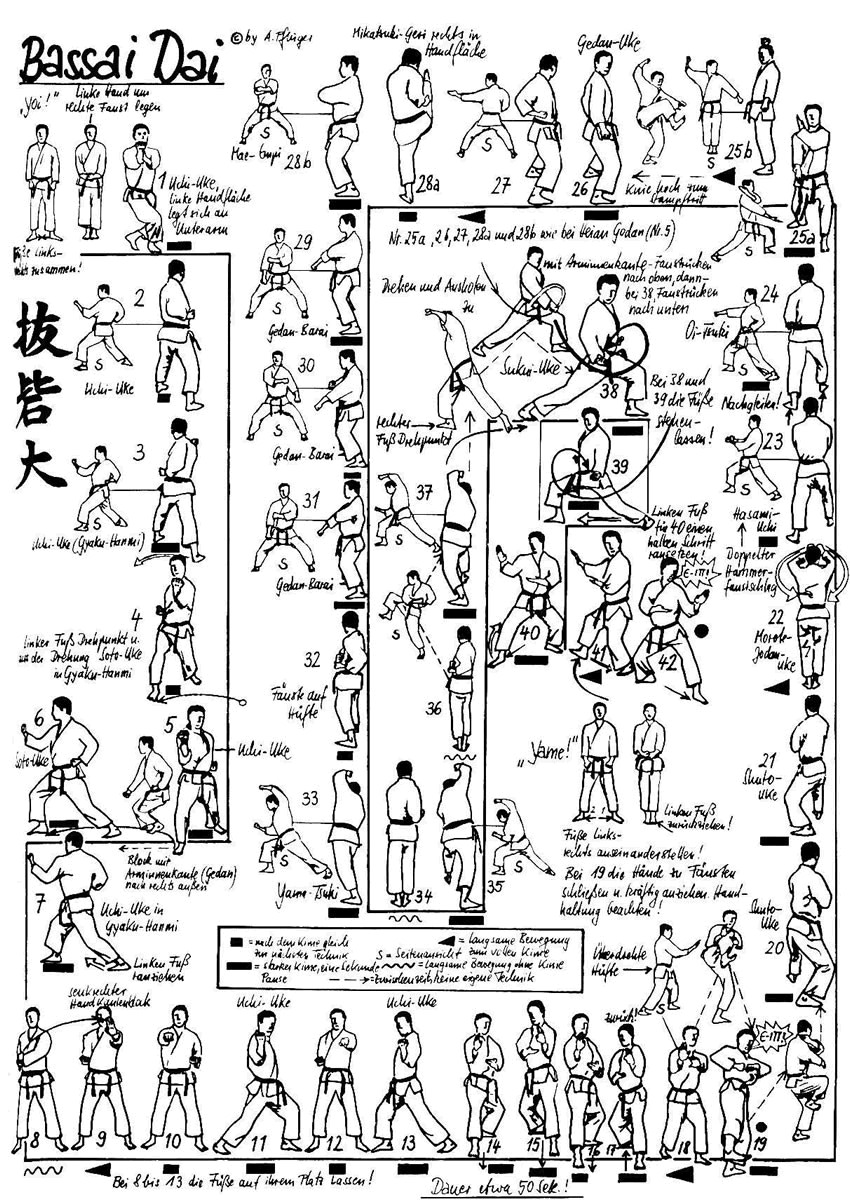 Bassai Dai
© by A. Pflüger
"Yoi!"
linke Hand um
rechte Faust legen
Füße links-
rechts zusammen!
1 Uchi-Uke,
linke Handfläche
legt sich an
Unterarm
抜
砦
大
2
S
Uchi-Uke
3
S
Uchi-Uke (Gyaku-Hanmi)
4
linker Fuß Drehpunkt u.
in der Drehung Soto-Uke
in Gyaku-Hanmi
5
Uchi-Uke
6
Soto-Uke
Block mit
Arminnenkante (Gedan)
nach rechts außen
7
Uchi-Uke in
Gyaku-Hanmi
Linken Fuß
ranziehen
senkrechter
Handkantenblock
8
9
10
Uchi-Uke
11
12
Uchi-Uke
13
14
15
16
17
18
19
Bei 8 bis 13 die Füße auf ihrem Platz lassen!
Dauer etwa 50 Sek.!
zurück!
Überdrehte
Hüfte
E-ITI!
Shuto-
Uke
20
21
Shuto-
Uke
22
Morote-
Jodan-
Uke
23
S
Hasami-
Uchi
Doppelter
Hammer-
faustschlag
24
Oi-Tsuki
S
Nachgleiten!
25a
S
25b
S
Knie hoch zum
Stampftritt
Gedan-Uke
26
27
S
Mikatsuki-Geri rechts in
Handfläche
28a
28b
S
Mae-Empi
Nr. 25a, 26, 27, 28a und 28b wie bei Heian Godan (Nr. 5)
29
S
Gedan-Barai
30
S
Gedan-Barai
31
S
Gedan-Barai
32
Fäuste auf
Hüfte
33
S
Yama-Tsuki
34
35
S
36
S
37
S
rechter
Fuß Drehpunkt
Drehen und Ausholen
zu
mit Arminnenkante-Faustrücken
nach oben, dann
bei 38, Faustrücken
nach unten
Sukui-Uke
38
Bei 38 und
39 die Füße
stehen-
lassen!
39
Linken Fuß
für 40 einen
halben Schritt
ransetzen!
40
41
42
E-ITI!
"Yame!"
Linken Fuß
zurückziehen!
Füße links-
rechts auseinanderstellen!
Bei 19 die Hände zu Fäusten
schließen u. kräftig anziehen. Hand-
haltung beachten!
= nach dem Kime gleich
zur nächsten Technik
= starkes Kime, eine Sekunde
Pause
= langsame Bewegung
zum vollen Kime
S = Seitenansicht
= langsame Bewegung ohne Kime
= zwischenzeitl. keine eigene Technik